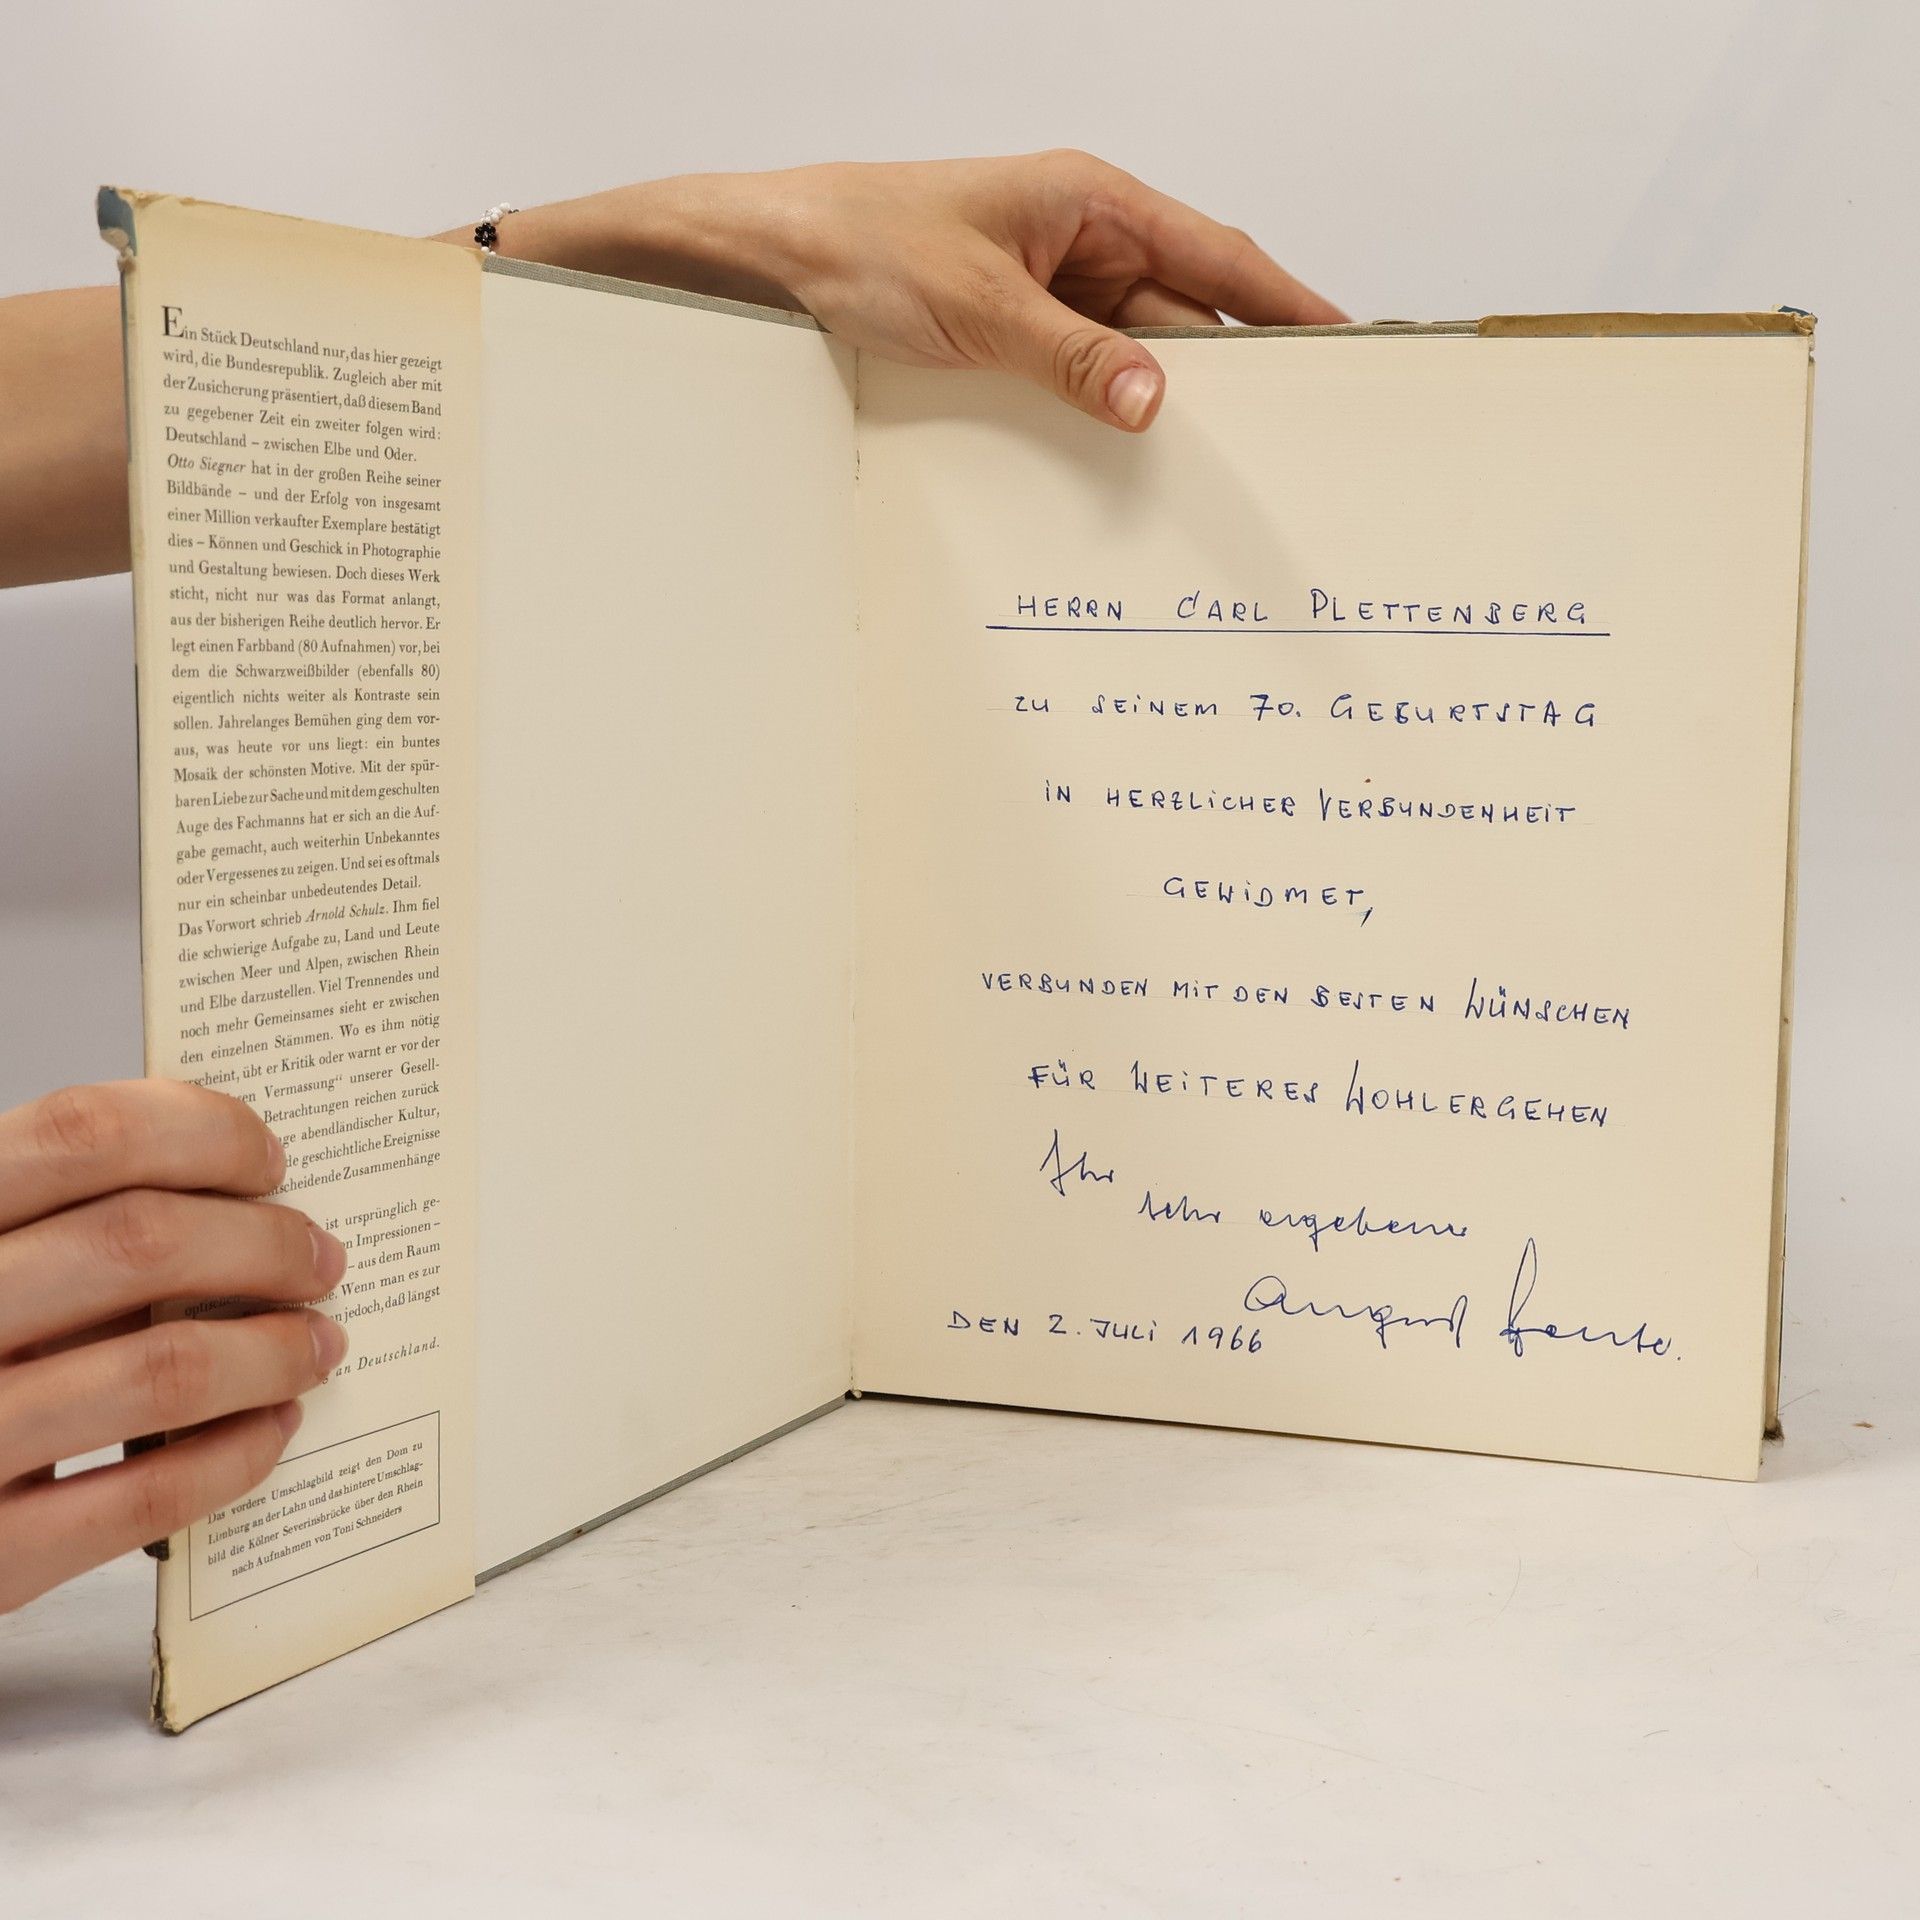 Ein Stück Deutschland nur, das hier gezeigt
wird, die Bundesrepublik. Zugleich aber mit
der Zusicherung präsentiert, daß diesem Band
zu gegebener Zeit ein zweiter folgen wird:
Deutschland – zwischen Elbe und Oder.
Otto Siegner hat in der großen Reihe seiner
Bildbände – und der Erfolg von insgesamt
einer Million verkaufter Exemplare bestätigt
dies – Können und Geschick in Photographie
und Gestaltung bewiesen. Doch dieses Werk
sticht, nicht nur was das Format anlangt,
aus der bisherigen Reihe deutlich hervor. Er
legt einen Farbband (80 Aufnahmen) vor, bei
dem die Schwarzweißbilder (ebenfalls 80)
eigentlich nichts weiter als Kontraste sein
sollen. Jahrelanges Bemühen ging dem vor-
aus, was heute vor uns liegt: ein buntes
Mosaik der schönsten Motive. Mit der spür-
baren Liebe zur Sache und mit dem geschulten
Auge des Fachmanns hat er sich an die Auf-
gabe gemacht, auch weiterhin Unbekanntes
oder Vergessenes zu zeigen. Und sei es oftmals
nur ein scheinbar unbedeutendes Detail.
Das Vorwort schrieb Arnold Schulz. Ihm fiel
die schwierige Aufgabe zu, Land und Leute
zwischen Meer und Alpen, zwischen Rhein
und Elbe darzustellen. Viel Trennendes und
noch mehr Gemeinsames sieht er zwischen
den einzelnen Stämmen. Wo es ihm nötig
erscheint, übt er Kritik oder warnt er vor der
Vermassung“ unserer Gesell-
Betrachtungen reichen zurück
abendländischer Kultur,
geschichtliche Ereignisse
Zusammenhänge
ist ursprünglich ge-
Impressionen –
– aus dem Raum
Wenn man es zur
jedoch, daß längst
an Deutschland.
Das vordere Umschlagbild zeigt den Dom zu
Limburg an der Lahn und das hintere Umschlag-
bild die Kölner Severinsbrücke über den Rhein
nach Aufnahmen von Toni Schneiders
HERRN CARL PLETTENBERG
ZU SEINEM 70. GEBURTSTAG
IN HERZLICHER VERBUNDENHEIT
GEWIDMET,
VERBUNDEN MIT DEN BESTEN WÜNSCHEN
FÜR WEITERES WOHLERGEHEN
Ihr
sehr ergebener
August
DEN 2. JULI 1966